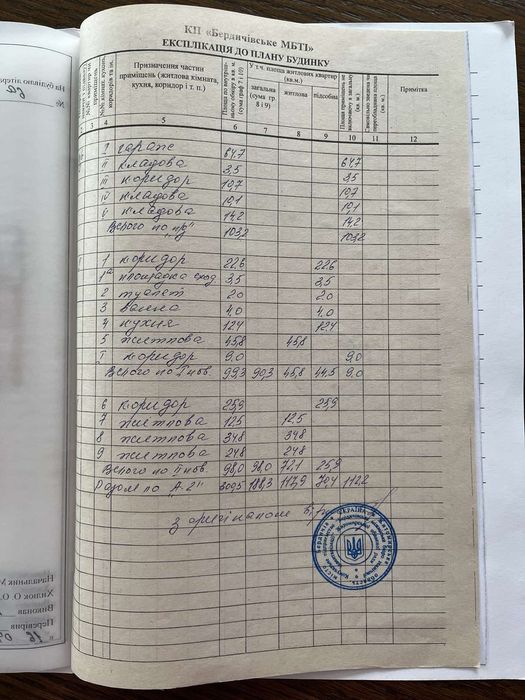 КП «Бердичівське МБТІ»
ЕКСПЛІКАЦІЯ ДО ПЛАНУ БУДИНКУ
На будівлю літера
№
Призначення частин приміщень (житлова кімната, кухня, коридор і т. п.)
Площа по внутрішньому обміру в кв. м. (сума граф 7 і 10)
У т.ч. площа житлових квартир (кв.м.)
загальна (сума гр. 8 і 9)
житлова
підсобна
Примітка
2 3 4 5 6 7 8 9 10 11 12
I гараж 64,7 64,7
II кладова 3,5 3,5
III коридор 19,7 19,7
IV кладова 19,1
V кладова 14,2 14,2
Всього по "пд" 103,2 103,2
1 коридор 22,6 22,6
1а площадка сход 3,5 3,5
2 туалет 2,0 2,0
3 ванна 4,0 4,0
4 кухня 12,4 12,4
5 житлова 45,8 45,8
I коридор 9,0 9,0
Всього по I пов 99,3 90,3 45,8 44,5 9,0
6 коридор 25,9 25,9
7 житлова 12,5 12,5
8 житлова 34,8 34,8
9 житлова 24,8 24,8
Всього по II пов 98,0 98,0 72,1 25,9
Разом по "А-2" 300,5 188,3 117,9 70,4 112,2
З оригіналом
Начальник М
Хилюк О О
Виконав
Перевірив